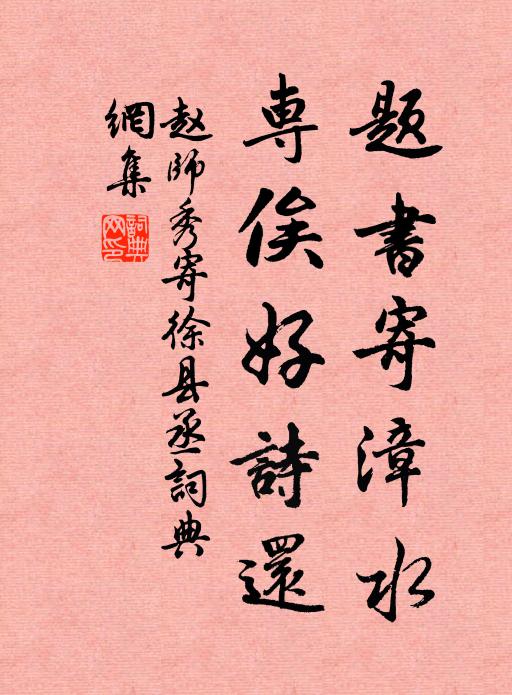 题書寄漳水
専俟好詩還
赵師秀寄徐县丞詞典
網集
詞典网印